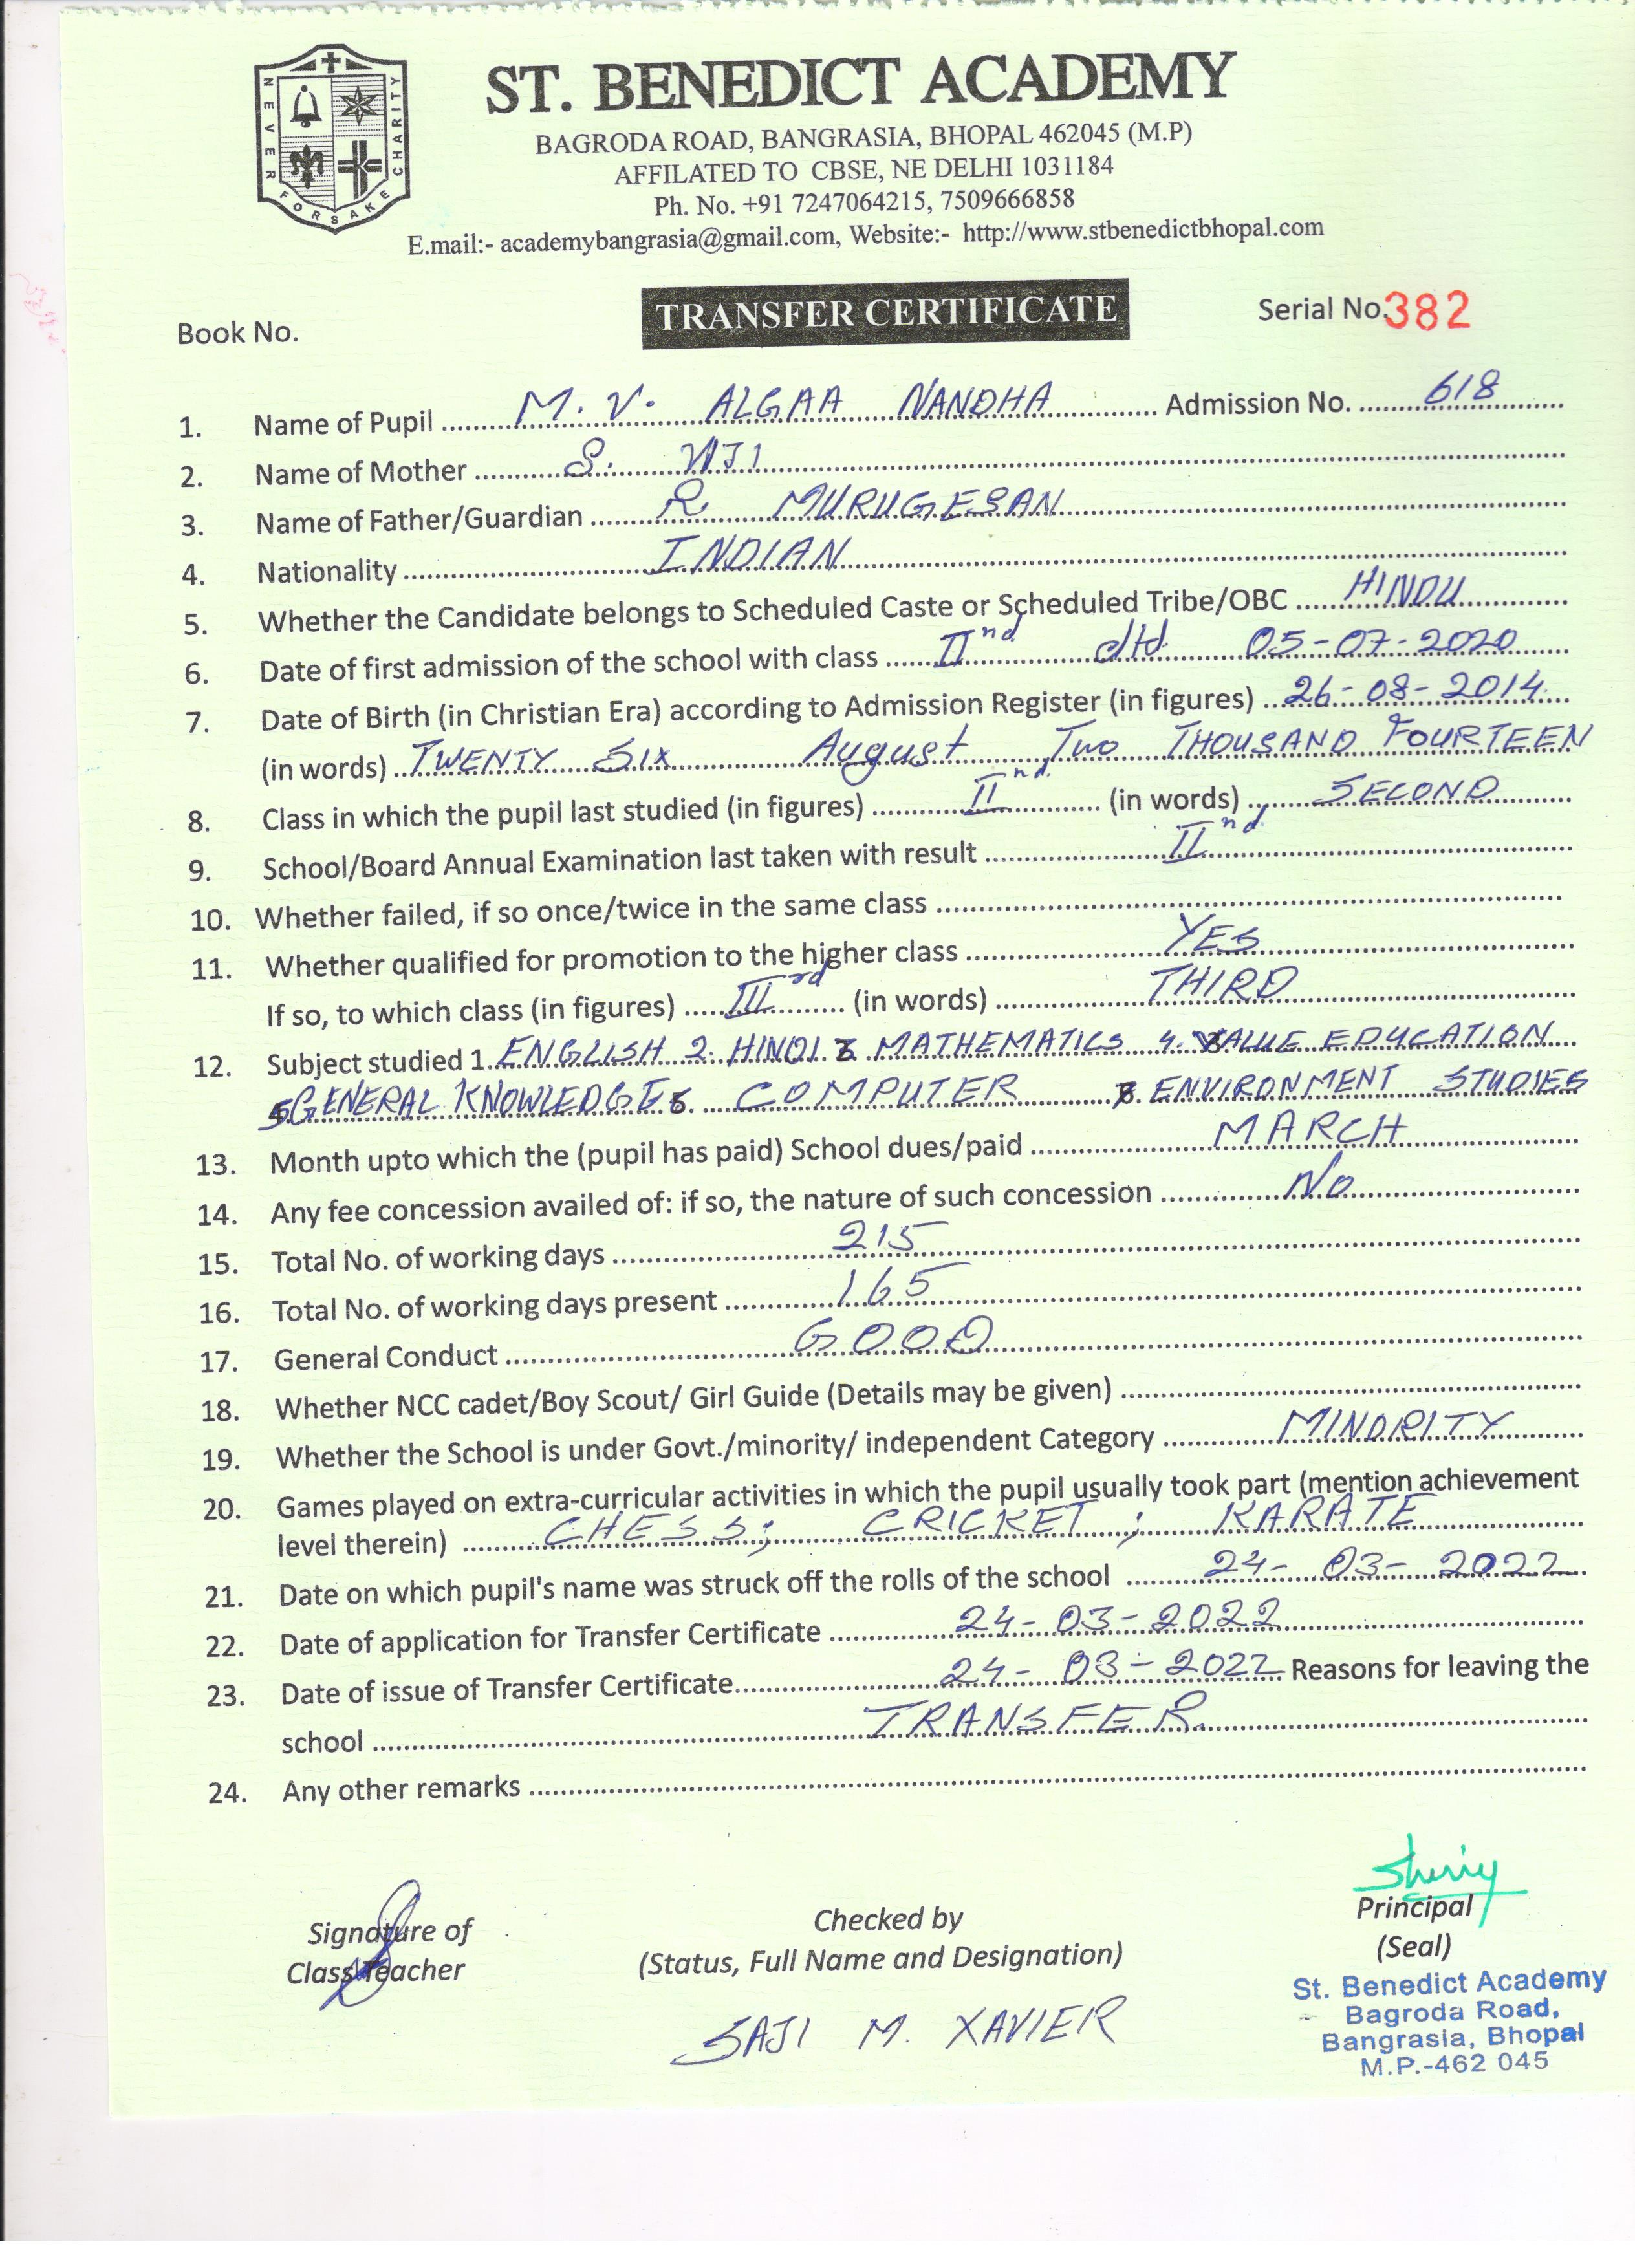 NEVER FORSAKE CHARITY
ST. BENEDICT ACADEMY
BAGRODA ROAD, BANGRASIA, BHOPAL 462045 (M.P)
AFFILATED TO CBSE, NE DELHI 1031184
Ph. No. +91 7247064215, 7509666858
E.mail:- academybangrasia@gmail.com, Website:- http://www.stbenedictbhopal.com
Book No. TRANSFER CERTIFICATE Serial No. 382
1. Name of Pupil M. V. ALGAA NANDHA Admission No. 618
2. Name of Mother S. VIJI
3. Name of Father/Guardian R MURUGESAN
4. Nationality INDIAN
5. Whether the Candidate belongs to Scheduled Caste or Scheduled Tribe/OBC HINDU
6. Date of first admission of the school with class IInd dtd 05-07-2020
7. Date of Birth (in Christian Era) according to Admission Register (in figures) 26-08-2014
(in words) TWENTY SIX August Two THOUSAND FOURTEEN
8. Class in which the pupil last studied (in figures) IInd (in words) SECOND
9. School/Board Annual Examination last taken with result IInd
10. Whether failed, if so once/twice in the same class
11. Whether qualified for promotion to the higher class YES
If so, to which class (in figures) IIIrd (in words) THIRD
12. Subject studied 1. ENGLISH 2. HINDI 3 MATHEMATICS 4. VALUE EDUCATION
5 GENERAL KNOWLEDGE 6. COMPUTER 7. ENVIRONMENT STUDIES
13. Month upto which the (pupil has paid) School dues/paid MARCH
14. Any fee concession availed of: if so, the nature of such concession No
15. Total No. of working days 215
16. Total No. of working days present 165
17. General Conduct GOOD
18. Whether NCC cadet/Boy Scout/ Girl Guide (Details may be given)
19. Whether the School is under Govt./minority/ independent Category MINORITY
20. Games played on extra-curricular activities in which the pupil usually took part (mention achievement
level therein) CHESS; CRICKET; KARATE
21. Date on which pupil's name was struck off the rolls of the school 24-03-2022
22. Date of application for Transfer Certificate 24-03-2022
23. Date of issue of Transfer Certificate 24-03-2022 Reasons for leaving the
school TRANSFER.
24. Any other remarks
Sherry
Signature of Checked by Principal
Class Teacher (Status, Full Name and Designation) (Seal)
SAJI M. XAVIER
St. Benedict Academy
Bagroda Road,
Bangrasia, Bhopal
M.P.-462 045